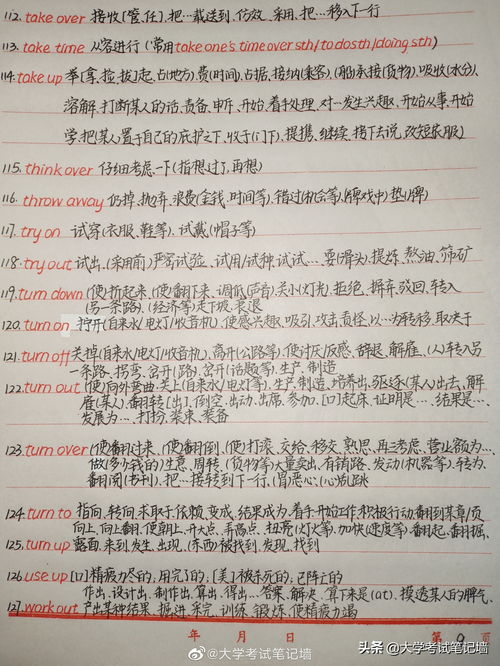 112. take over 接收[管,任],把…载送到,仿效,采用,把…移入下行
113. take time 从容进行(常用take one's time over sth/to do sth/doing sth)
114. take up 举[拿,捡,拔]起,占(地方),费(时间),占据,接纳(乘客),(船)承接(货物),吸收(水分),
溶解,打断某人的话,责备,申斥,开始,着手处理,对…发生兴趣,开始从事,开始
学,把某人置于自己的庇护之下,收于(门下),提携,继续,接下去说,改短(衣服)
115. think over 仔细考虑一下(指想过了,再想)
116. throw away 扔掉,抛弃,浪费(金钱,时间等),错过(机会等),(牌戏中)垫(牌)
117. try on 试穿(衣服,鞋等),试戴(帽子等)
118. try out 试出,(采用前)严密试验,试用/试独,试试…耍(滑头),提炼,熬油,筛矿
119. turn down (使)折起来,(使)翻下来,调低(声音),关小(灯光),拒绝,摒弃,或回,转入
(另一条路),(经济等)走下坡,衰退
120. turn on 拧开(自来水/电灯/收音机),使感兴趣,吸引,攻击,责怪,以…为转移,取决于
121. turn off 关掉(自来水/电灯/收音机),离开(公路等),使讨厌/反感,辞退,解雇,(人)转入另
一条路,拐弯,岔开(路),岔开(话题等),生产,制造
122. turn out (使)向外弯曲,关上(自来水/电灯等),生产,制造,培养出,驱逐(某人)出去,解
雇(某人),翻转[出],倒空,出动,出席,参加,[口]起床,证明是…,结果是…,
发展为…,打扮,装束,装备
123. turn over (使)翻过来,(使)翻倒,(使)打滚,交给,移交,熟思,再考虑,营业额为…,
做(多少钱的)生意,周转,(货物等)大量卖出,有销路,发动(机器等),转为,
翻阅(书刊),把…接转到下一行,(胃)恶心,(心)乱跳
124. turn to 指向,转向,求取于,依赖,变成,结果成为,着手,开始工作,积极行动,翻到某章/页
向上,向上翻,使朝上,开大点,弄高点,扭亮(灯火等),加快(速度等),翻起,翻掘,
125. turn up 露面,来到,发生,出现,(东西)被找到,发现,找到
126. use up [口]精疲力尽的;用完了的;[美]被杀死的;已阵亡的
作出,设计出,制作出,算出…答案,解决,算下来是(at),摸透某人的脾气,
127. work out 产出某种结果,掘进,采完,训练,锻炼,使精疲力竭
年 月 日 第 9 页
@大学考试笔记墙
头条 @大学考试笔记墙